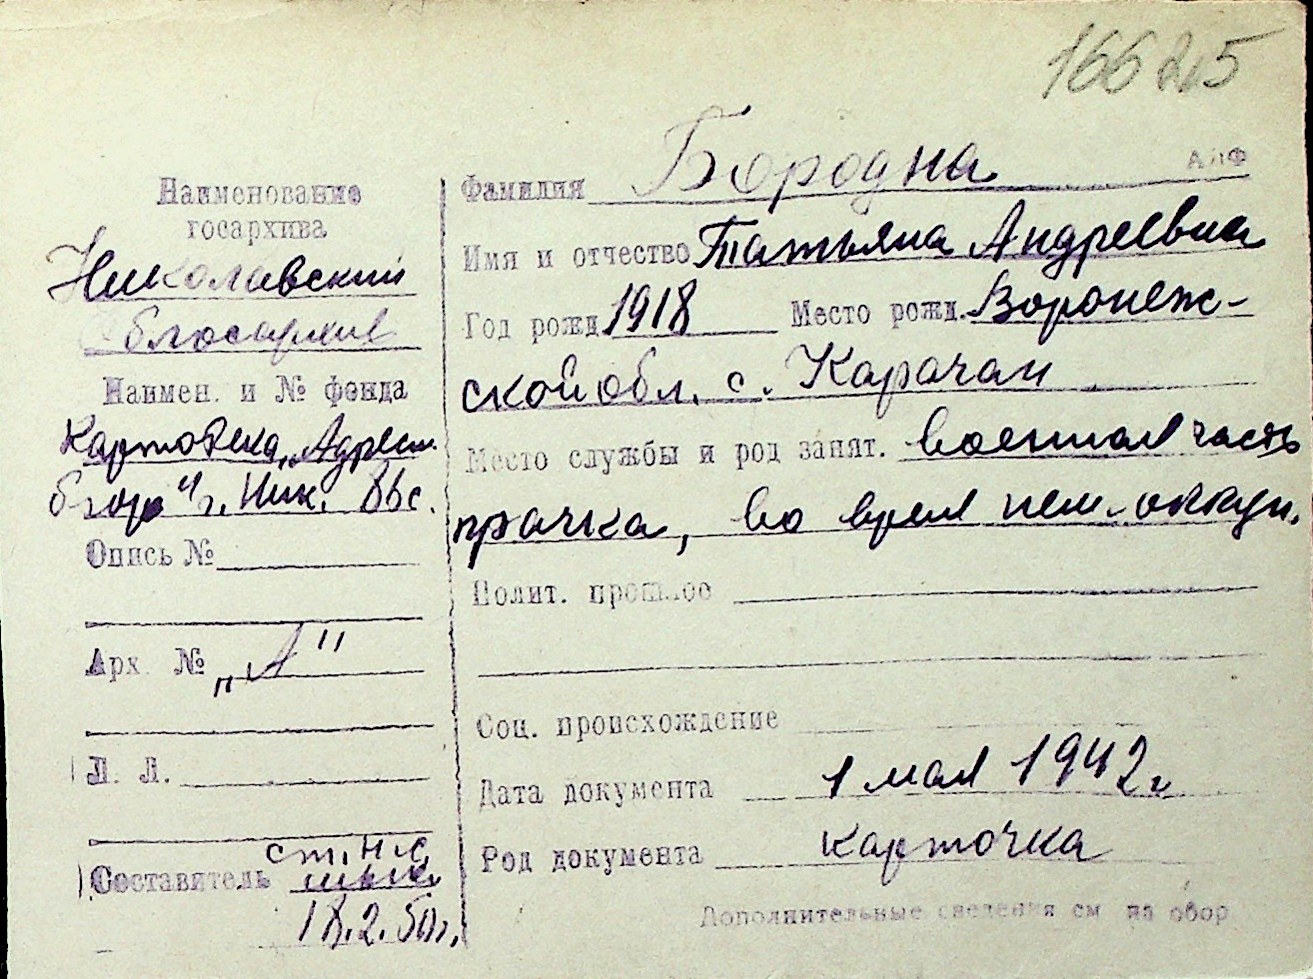 16625
АПФ
Наименование
госархива
Николаевский
облгосархив
Наимен. и № фонда
Картотека „Адресн.
бюро" г. Ник.
Опись №
Арх. № „А"
Л. Л.
Составитель ст. н.с.
18.2.50 г.
Фамилия Бородна
Имя и отчество Татьяна Андреевна
Год рожд. 1918 Место рожд. Воронеж-
ской обл. с. Карачан
Место службы и род занят. военная часть
прачка, во время нем. оккуп.
Полит. прошлое
Соц. происхождение
Дата документа 1 мая 1942 г.
Род документа карточка
Дополнительные сведения см на обор